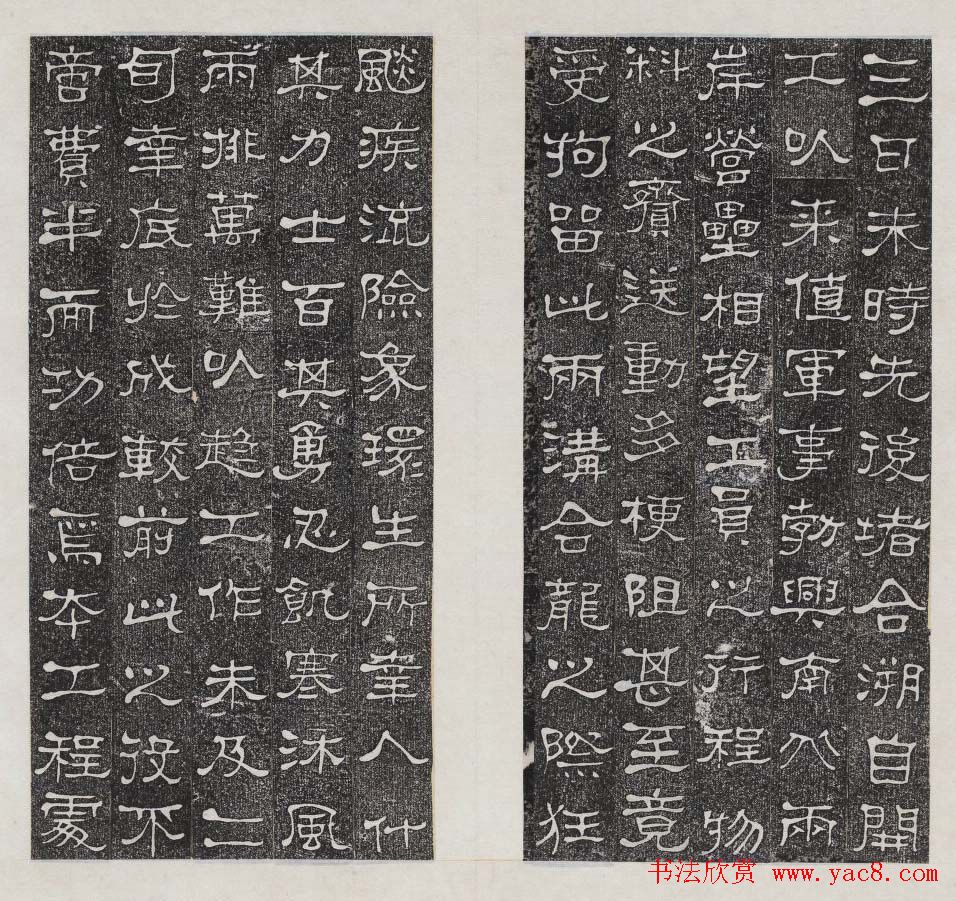 三日未時先後堵合溯自開
工以来值軍事勃興南北兩
岸營壘相望工員之行程物
料之賫送動多梗阻甚至竟
受拘留此兩溝合龍之際狂
飈疾流險象環生所幸人什
其力士百其勇忍飢寒沐風
雨排萬難以趋工作未及二
旬幸底於成較前此之役不
啻費半而功倍焉本工程處
书法欣赏 www.yac8.com